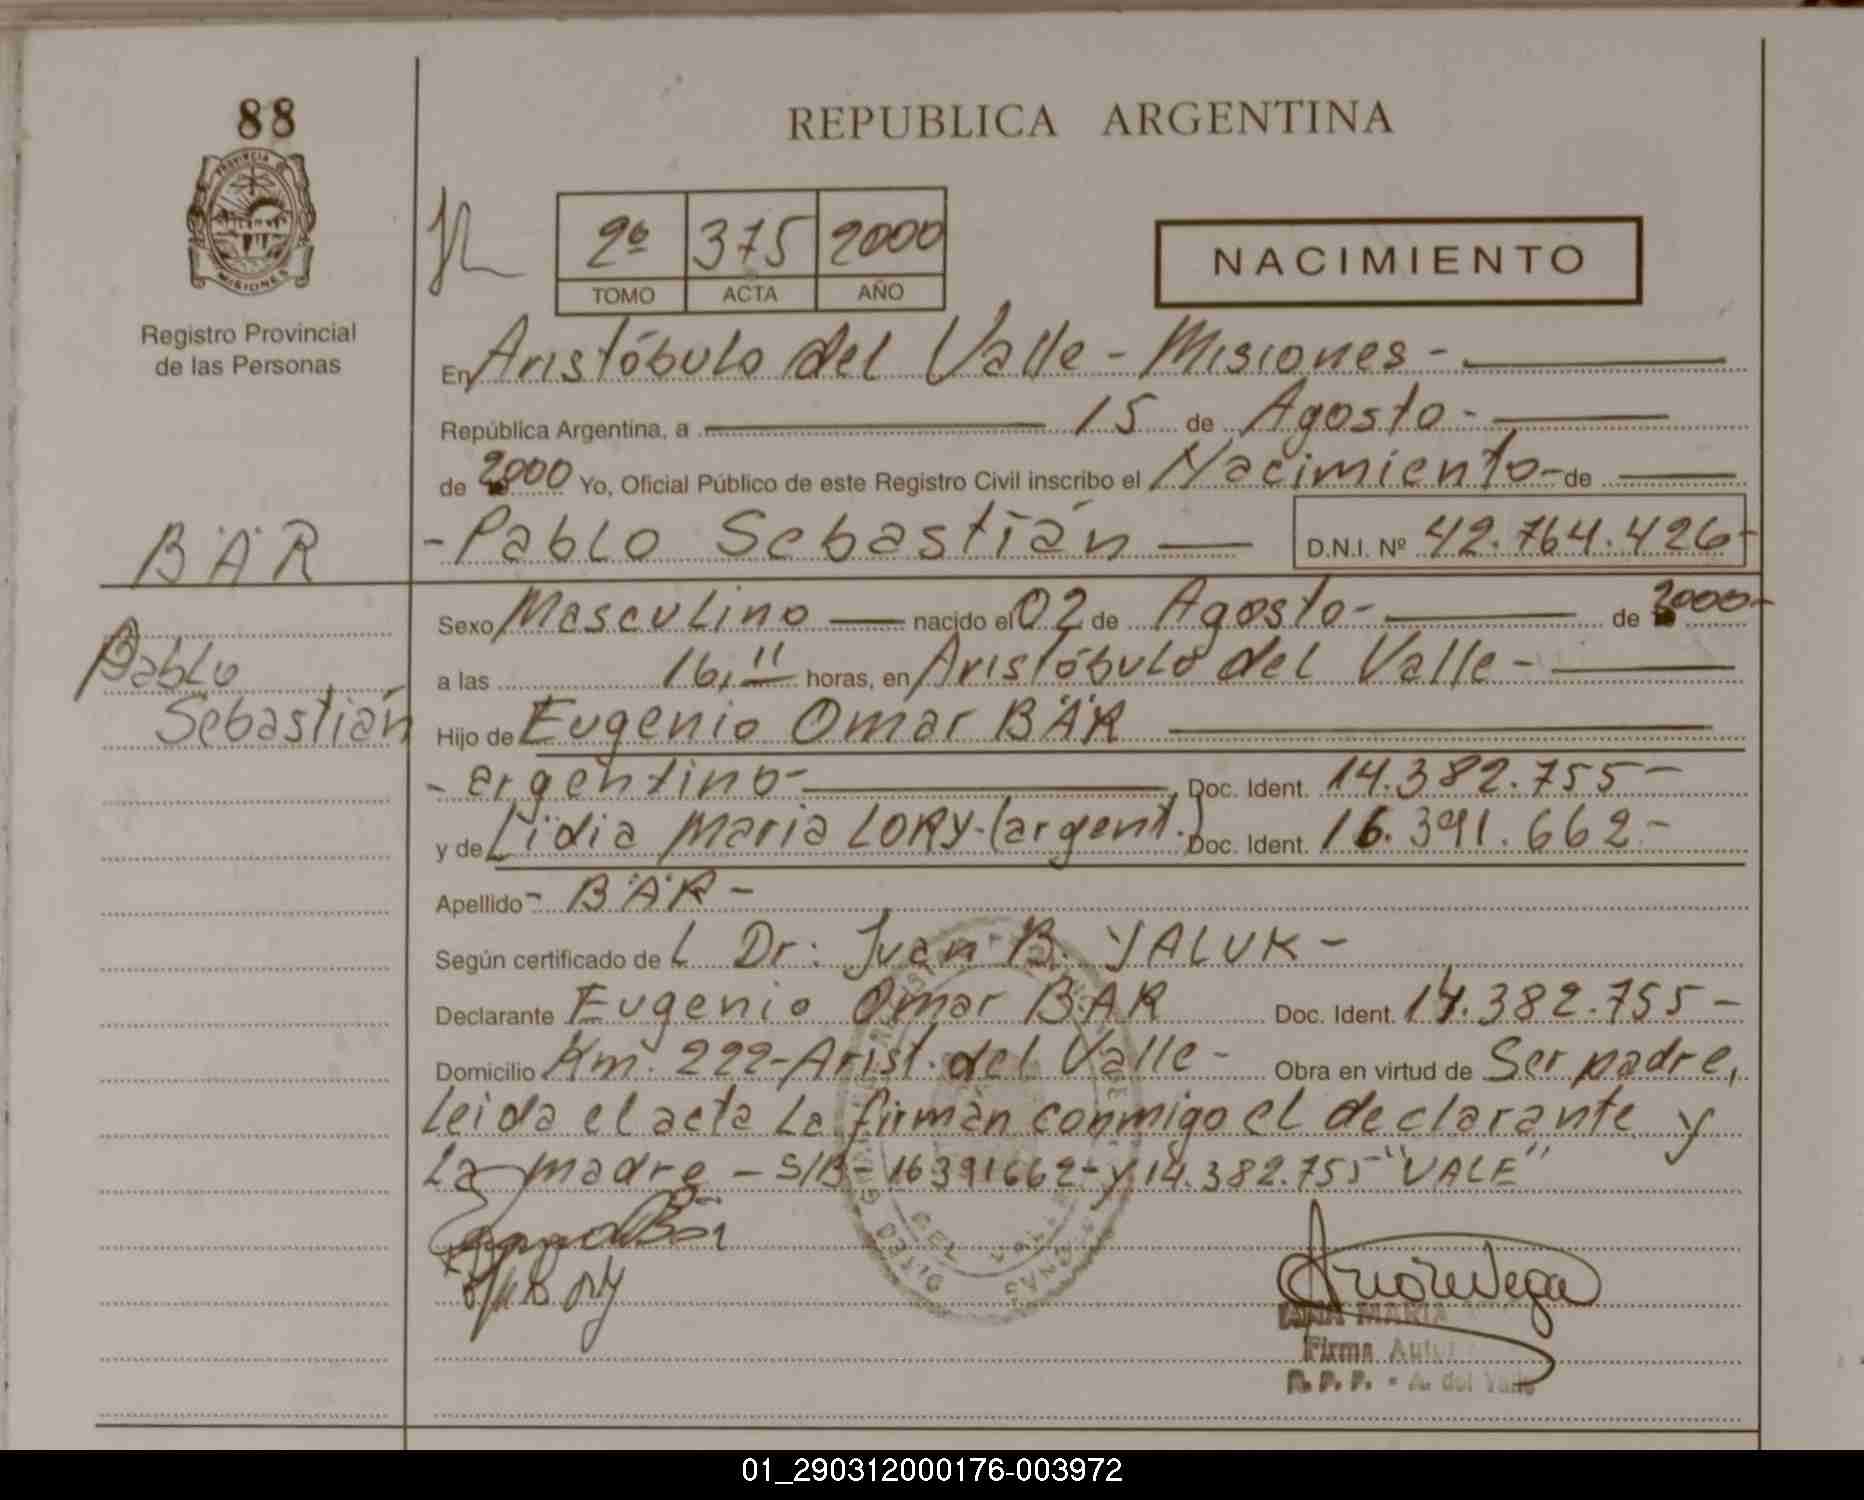 88
PROVINCIA DE
MISIONES
Registro Provincial
de las Personas
BÄR
Pablo
Sebastián
REPUBLICA ARGENTINA
2º 375 2000
TOMO ACTA AÑO
NACIMIENTO
En Aristóbulo del Valle - Misiones -
República Argentina, a 15 de Agosto -
de 2000 Yo, Oficial Público de este Registro Civil inscribo el Nacimiento - de
- Pablo Sebastián D.N.I. Nº 42.764.426 -
Sexo Masculino nacido el 02 de Agosto - de 2000 -
a las 16,11 horas, en Aristóbulo del Valle -
Hijo de Eugenio Omar BÄR
- argentino - Doc. Ident. 14.382.755 -
y de Lidia Maria LORY - (argent.) Doc. Ident. 16.391.662 -
Apellido - BÄR -
Según certificado de L Dr: Juan B. YALUK -
Declarante Eugenio Omar BÄR Doc. Ident. 14.382.755 -
Domicilio Km. 222 - Arist. del Valle - Obra en virtud de Ser padre,
leida el acta la firman conmigo el declarante y
la madre - S/B - 16391662 - y 14.382.755 "VALE"
ANA MARIA
Firma Autor
R. P. P. - A. del Valle
01_290312000176-003972